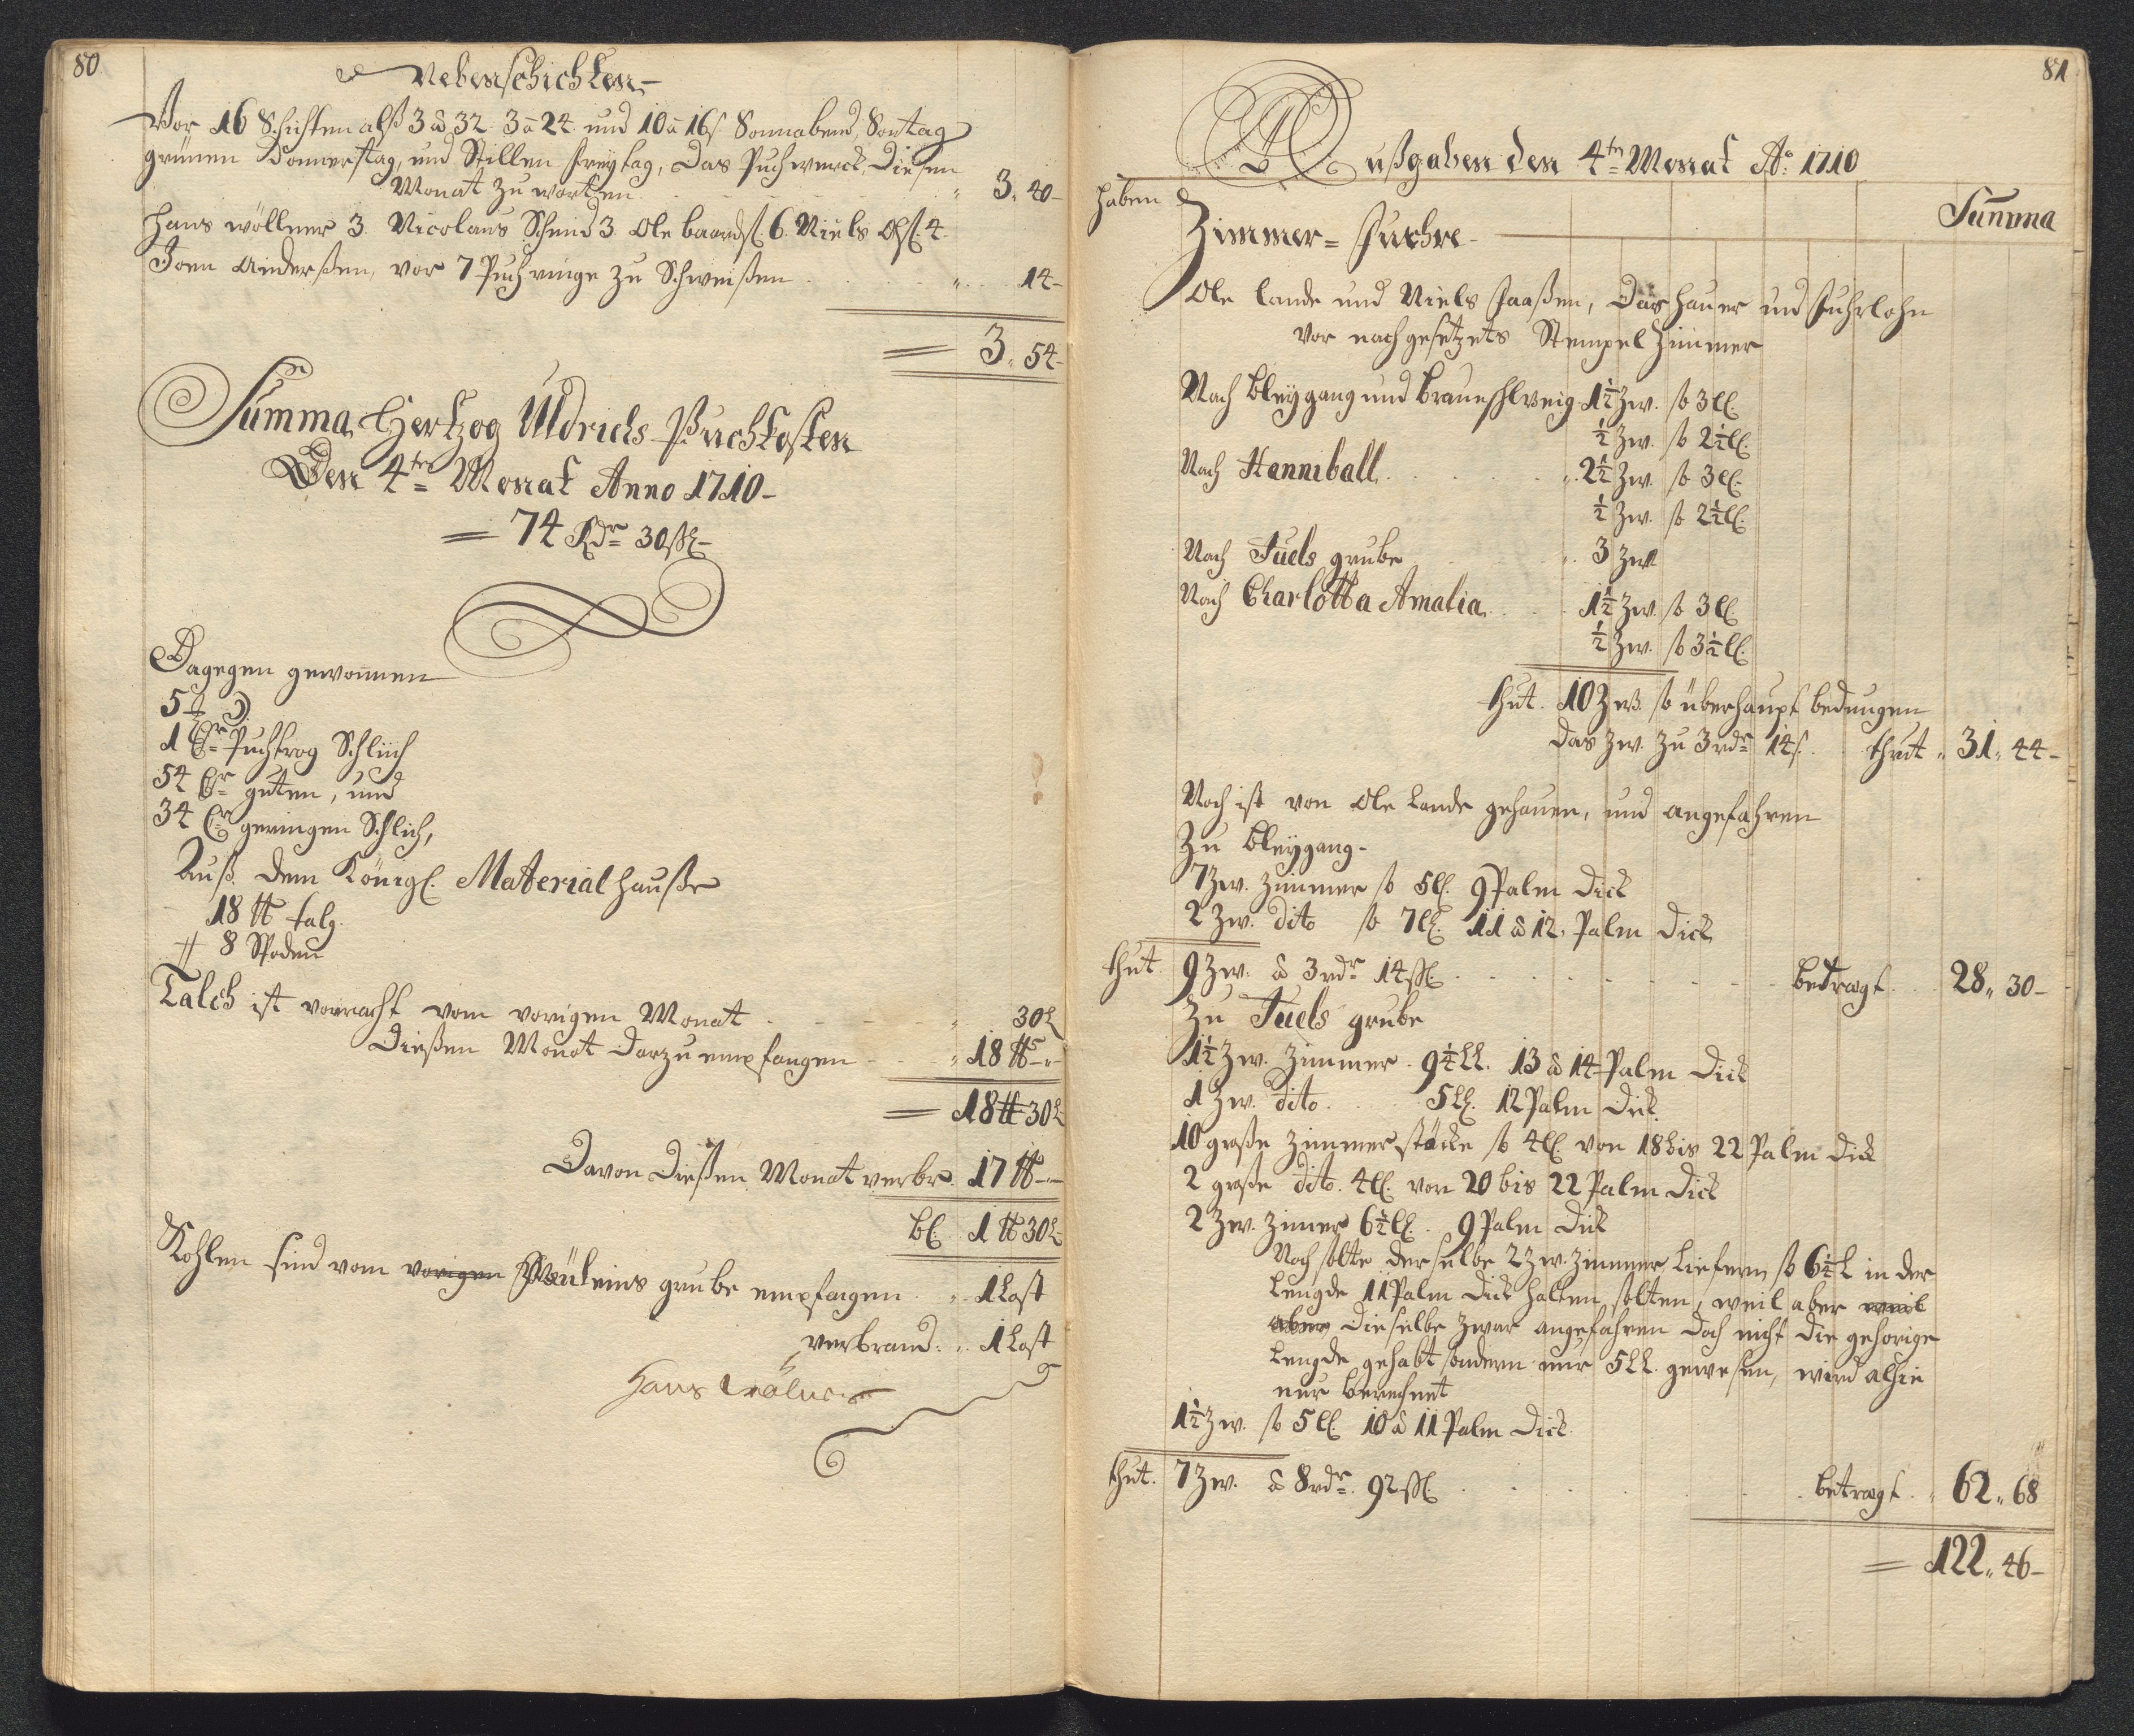 80
Nebenschichten
Vor 16 Schichten alß 3 â 32. 3 â 24 und 10 â 16ß Sonnabend, Sontag
grünen Donnerstag, und Stillen Freytag, das Puchwerck, diesen
Monat zu warten 3„ 40
Hans Wöllner 3. Nicolaus Schmid 3. Ole 6. Niels Olß. 4.
Joen Anderßen, vor 7 Puchringe zu Schweißen „ 14
= 3„ 54
Summa Hertzog Uldrichs Puchkosten
Den 4tn Monat Anno 1710
= 74 Rdr 30ßl
Dagegen gewonnen
1 Puchtrog Schlich
54 guten, und
34 geringen Schlich,
Auß dem Königl. Material Hauße
18 ℔ talg.
8 Spoden
Talch ist vorracht vom vorigen Monat „ 30L
Dießen Monat darzu empfangen „ 18 ℔
= 18 ℔ 30L
Davon dießen Monat verbr. 17 ℔
bl. 1 ℔ 30L
Kohlen sind vom vorigen grube empfangen „ 1 Last
verbrand „ 1 Last
Hans Wölner
81
Außgaben den 4tn Monat Ao: 1710
haben
Summa
Zimmer-Fuehre
Ole Lande und Niels Joaßen, das Hauer und Fuhrlohn
vor nachgesetzets Stempel Zimmer
Nach Bleygang und Braunschweig 1½ Zw. so 3 ll.
½ Zw. so 2½ ll.
Nach Hanniball „ 2½ Zw. so 3 ll.
½ Zw. so 2½ ll.
Nach Juels grube „ 3 Zw
Nach Charlotta Amalia 1½ Zw. so 3 ll.
½ Zw. so 3½ ll.
thut. 10 Zw. so überhaupt bedungen
das Zw. zu 3 rdr 14ß. thut „ 31„ 44
Noch ist von Ole Lande gehauen, und angefahren
Zu Bleygang
7 Zw. Zimmer so 5 ll. 9 Palm Dick
2 Zw. dito so 7 ll. 11 â 12. Palm Dick
thut. 9 Zw. â 3 rdr 14 ßl. betragt 28„ 30
Zu Juels grube
1½ Zw. Zimmer. 9¼ ll. 13 â 14 Palm Dick
1 Zw. dito. 5 ll. 12 Palm Dick
10 große Zimmer stöcke so 4 ll. von 18 bis 22 Palm Dick
2 große dito. 4 ll. von 20 bis 22 Palm Dick
2 Zw. Zimer 6½ ll. 9 Palm Dick
Noch solte derselbe 2 Zw. Zimmer liefern so 6¼ l in der
Lengde 11 Palm Dick halten solten, weil aber weil
aber dieselbe zwar angefahren doch nicht die gehorige
Lengde gehabt sondern nur 5 ll. gewesen, wird alhie
nur berechnet
1½ Zw. so 5 ll. 10 â 11 Palm Dick
thut. 7 Zw. â 8 rdr. 92 ßl. betragt „ 62„ 68
= 122„ 46